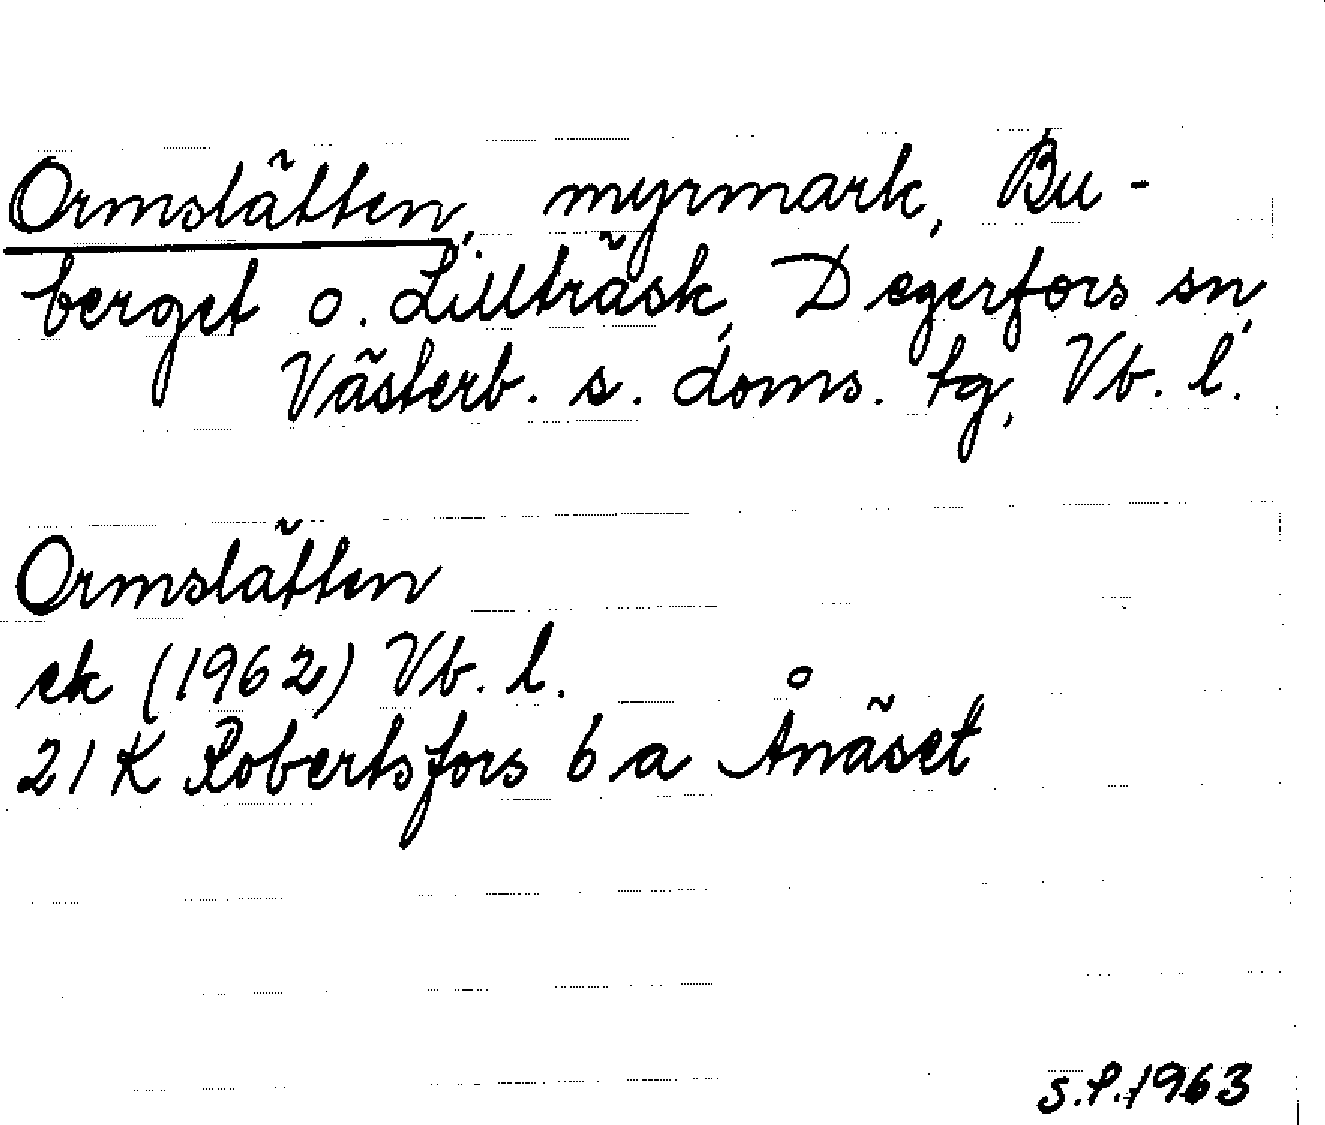 Ormslätten, myrmark, Bu-
berget o. Lillträsk, Degerfors sn,
Västerb. s. doms. tg, Vb. l.
Ormslätten
ek (1962) Vb. l.
21 K Robertsfors 6 a Ånäset
S.P. 1963